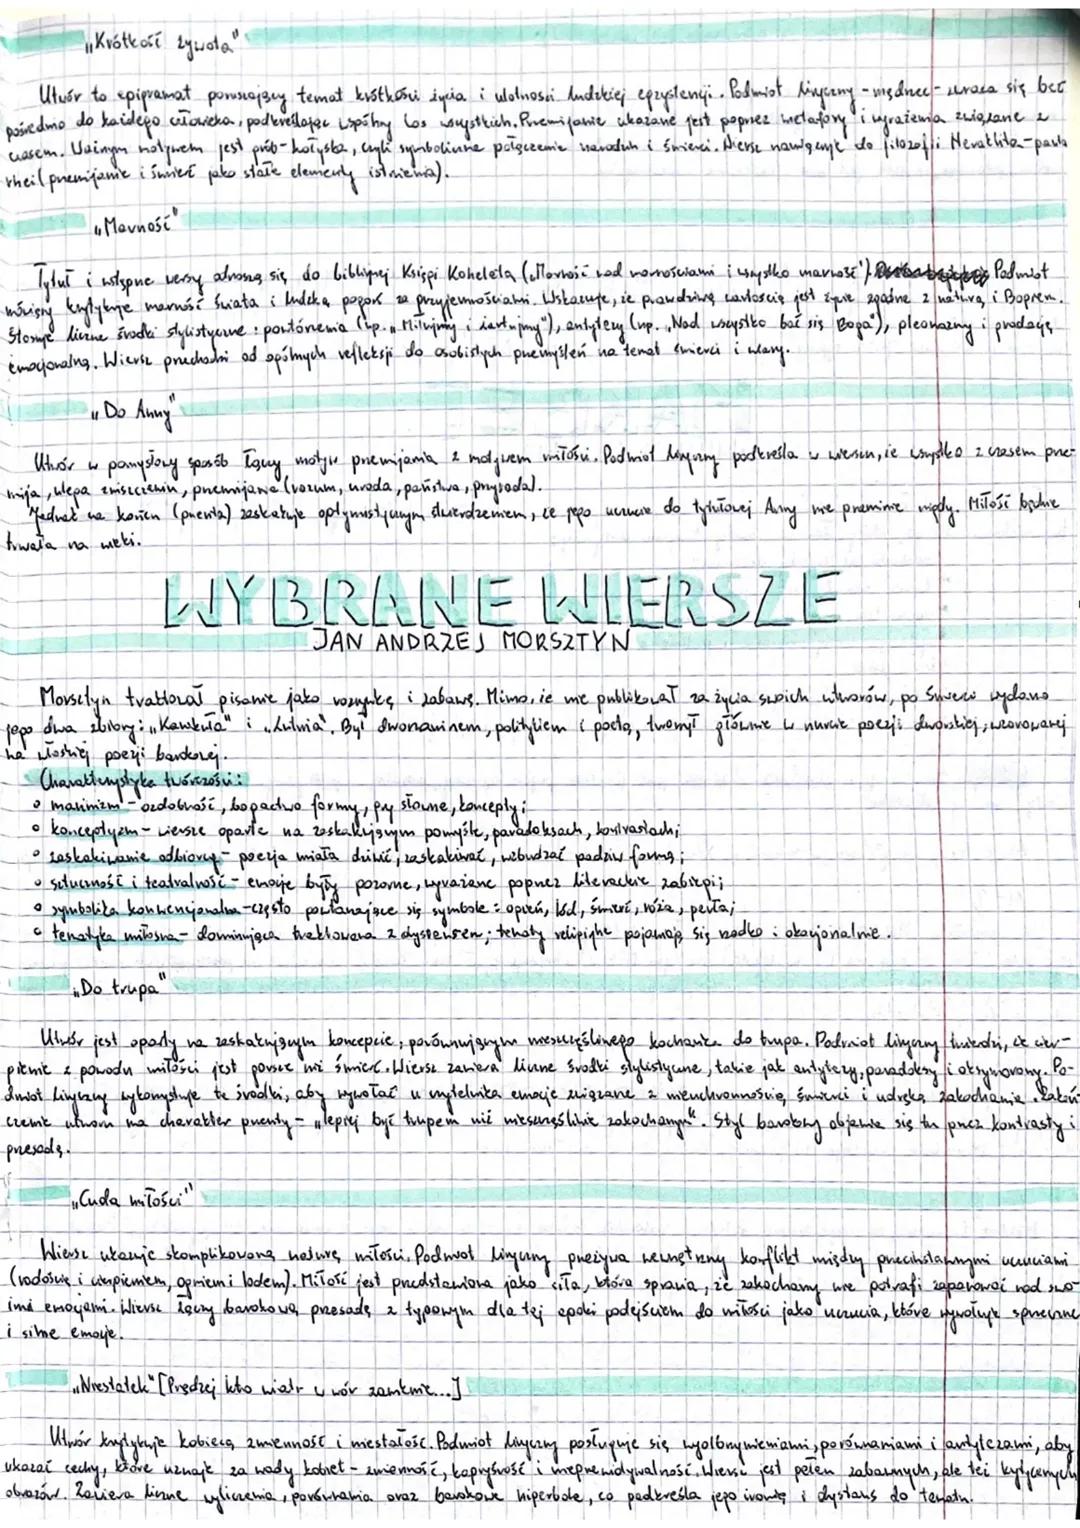 „Krótkość żywota"
Utwór to epigramat poruszający temat krótkości życia i ulotności ludzkiej egzystencji. Podmiot liryczny - mędrzec - zwraca się bez
pośrednio do każdego człowieka, podkreślając wspólny los wszystkich. Przemijanie ukazane jest poprzez metafory i wyrażenia związane z
czasem. Ważnym motywem jest grób-kołyska, czyli symboliczne połączenie narodzin i śmierci. Wiersz nawiązuje do filozofii Heraklita - panta
rhei (przemijanie i śmierć jako stałe elementy istnienia).
„Marność"
Tytuł i wstępne wersy odnoszą się do biblijnej Księgi Koheleta („Marność nad marnościami i wszystko marność"). Podmiot
mówiący krytykuje marność świata i ludzką pogoń za przyjemnościami. Wskazuje, że prawdziwą wartością jest życie zgodne z naturą i Bogiem.
Stosuje liczne środki stylistyczne: powtórzenia (np. „Miłujmy i żartujmy"), antytezy (np. „Nad wszystko bać się Boga"), pleonazmy i gradację
emocjonalną. Wiersz przechodzi od ogólnych refleksji do osobistych przemyśleń na temat śmierci i wiary.
„Do Anny"
Utwór w pomysłowy sposób łączy motyw przemijania z motywem miłości. Podmiot liryczny podkreśla w wierszu, że wszystko z czasem prze-
mija, ulega zniszczeniu, przemijanie (rozum, uroda, państwa, przyroda).
Jednak na końcu (puenta) zaskakuje optymistycznym stwierdzeniem, że jego uczucie do tytułowej Anny nie przeminie nigdy. Miłość będzie
trwała na wieki.
WYBRANE WIERSZE
JAN ANDRZEJ MORSZTYN
Morsztyn traktował pisanie jako rozrywkę i zabawę. Mimo, że nie publikował za życia swoich utworów, po śmierci wydano
jego dwa zbiory: „Kanikuła" i „Lutnia". Był dworzaninem, politykiem i poetą, tworzył głównie w nurcie poezji dworskiej, wzorowanej
na włoskiej poezji barokowej.
Charakterystyka twórczości:
• marinizm - ozdobność, bogactwo formy, gry słowne, koncepty;
• konceptyzm - wiersze oparte na zaskakującym pomyśle, paradoksach, kontrastach;
• zaskakiwanie odbiorcy - poezja miała dziwić, zaskakiwać, wzbudzać podziw formą;
• sztuczność i teatralność - emocje były pozorne, wyrażane poprzez literackie zabiegi;
• symbolika konwencjonalna - często powtarzające się symbole: ogień, lód, śmierć, róża, perła;
• tematyka miłosna - dominująca traktowana z dystansem; tematy religijne pojawiają się rzadko i okazjonalnie.
„Do trupa"
Utwór jest oparty na zaskakującym koncepcie, porównującym nieszczęśliwego kochanka do trupa. Podmiot liryczny twierdzi, że cier-
pienie z powodu miłości jest gorsze niż śmierć. Wiersz zawiera liczne środki stylistyczne, takie jak antytezy, paradoksy i oksymorony. Po-
dmiot liryczny wykorzystuje te środki, aby wywołać u czytelnika emocje związane z nieuchronnością śmierci i udręką zakochania. Zakoń-
czenie utworu ma charakter puenty - „lepiej być trupem niż nieszczęśliwie zakochanym". Styl barokowy objawia się tu przez kontrasty i
przesadę.
„Cuda miłości"
Wiersz ukazuje skomplikowaną naturę miłości. Podmiot liryczny przeżywa wewnętrzny konflikt między przeciwstawnymi uczuciami
(radością i cierpieniem, ogniem i lodem). Miłość jest przedstawiona jako siła, która sprawia, że zakochany nie potrafi zapanować nad swo-
imi emocjami. Wiersz łączy barokową przesadę z typowym dla tej epoki podejściem do miłości jako uczucia, które wywołuje sprzeczne
i silne emocje.
„Niestatek" [Prędzej kto wiatr w wór zamknie...]
Utwór krytykuje kobiecą zmienność i niestałość. Podmiot liryczny posługuje się wyolbrzymieniami, porównaniami i antytezami, aby
ukazać cechy, które uznaje za wady kobiet - zmienność, kapryśność i nieprzewidywalność. Wiersz jest pełen zabawnych, ale też krytycznych
obrazów. Zawiera liczne wyliczenia, porównania oraz barokowe hiperbole, co podkreśla jego ironię i dystans do tematu.